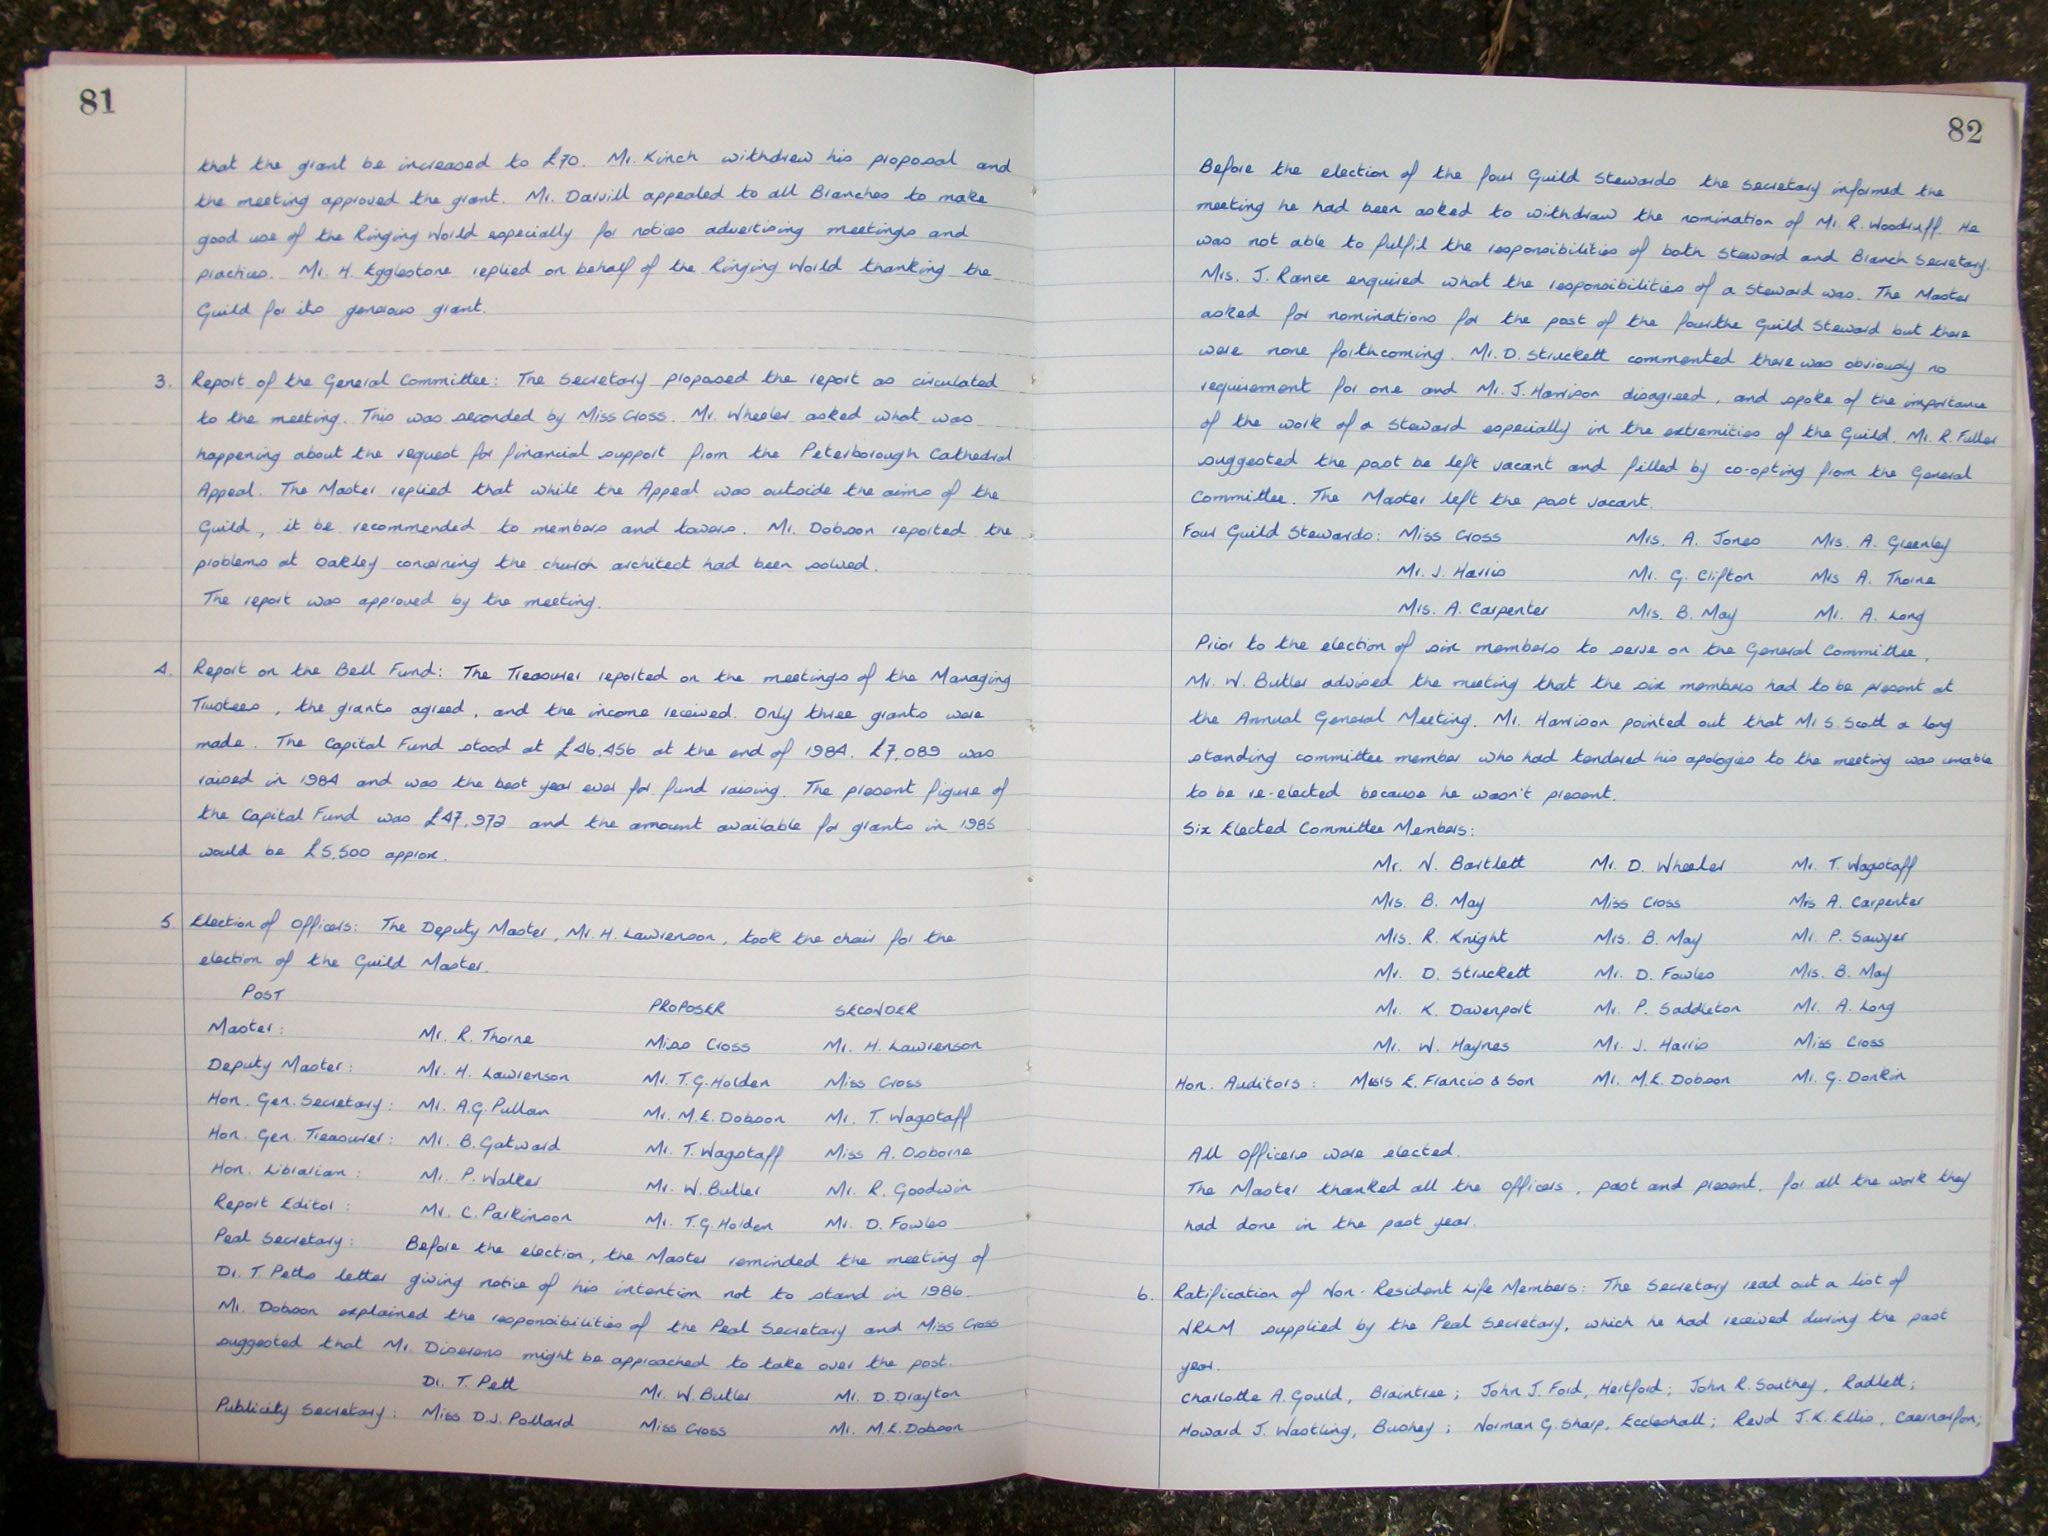 81
that the grant be increased to £70. Mr. Kinch withdrew his proposal and
the meeting approved the grant. Mr. Darvill appealed to all Branches to make
good use of the Ringing World especially for notices advertising meetings and
practices. Mr. H. Egglestone replied on behalf of the Ringing World thanking the
Guild for its generous grant.
3. Report of the General Committee: The Secretary proposed the report as circulated
to the meeting. This was seconded by Miss Cross. Mr. Wheeler asked what was
happening about the request for financial support from the Peterborough Cathedral
Appeal. The Master replied that while the Appeal was outside the aims of the
Guild, it be recommended to members and towers. Mr. Dobson reported the
problems at Oakley concerning the church architect had been solved.
The report was approved by the meeting.
4. Report on the Bell Fund: The Treasurer reported on the meetings of the Managing
Trustees, the grants agreed, and the income received. Only three grants were
made. The Capital Fund stood at £46,456 at the end of 1984. £7,089 was
raised in 1984 and was the best year ever for fund raising. The present figure of
the Capital Fund was £47,972 and the amount available for grants in 1985
would be £5,500 approx.
5. Election of Officers: The Deputy Master, Mr. H. Lawrenson, took the chair for the
election of the Guild Master.
POST PROPOSER SECONDER
Master: Mr. R. Thorne Miss Cross Mr. H. Lawrenson
Deputy Master: Mr. H. Lawrenson Mr. T.G. Holden Miss Cross
Hon. Gen. Secretary: Mr. A.G. Pullan Mr. M.E. Dobson Mr. T. Wagstaff
Hon. Gen. Treasurer: Mr. B. Gatward Mr. T. Wagstaff Miss A. Osborne
Hon. Librarian: Mr. P. Walker Mr. W. Butler Mr. R. Goodwin
Report Editor: Mr. C. Parkinson Mr. T.G. Holden Mr. D. Fowles
Peal Secretary: Before the election, the Master reminded the meeting of
Dr. T. Petts letter giving notice of his intention not to stand in 1986.
Mr. Dobson explained the responsibilities of the Peal Secretary and Miss Cross
suggested that Mr. Diserens might be approached to take over the post.
Dr. T. Pett Mr. W. Butler Mr. D. Drayton
Publicity Secretary: Miss D.J. Pollard Miss Cross Mr. M.E. Dobson
82
Before the election of the four Guild Stewards the secretary informed the
meeting he had been asked to withdraw the nomination of Mr. R. Woodruff. He
was not able to fulfil the responsibilities of both Steward and Branch Secretary.
Mrs. J. Rance enquired what the responsibilities of a Steward was. The Master
asked for nominations for the post of the fourthe Guild Steward but there
were none forthcoming. Mr. D. Struckett commented there was obviously no
requirement for one and Mr. J. Harrison disagreed, and spoke of the importance
of the work of a Steward especially in the extremities of the Guild. Mr. R. Fuller
suggested the post be left vacant and filled by co-opting from the General
Committee. The Master left the post vacant.
Four Guild Stewards: Miss Cross Mrs. A. Jones Mrs. A. Greenley
Mr. J. Harris Mr. G. Clifton Mrs A. Thorne
Mrs. A. Carpenter Mrs. B. May Mr. A. Long
Prior to the election of six members to serve on the General Committee,
Mr. W. Butler advised the meeting that the six members had to be present at
the Annual General Meeting. Mr. Harrison pointed out that Mr S. Scott a long
standing committee member who had tendered his apologies to the meeting was unable
to be re-elected because he wasn't present.
Six Elected Committee Members:
Mr. N. Bartlett Mr. D. Wheeler Mr. T. Wagstaff
Mrs. B. May Miss Cross Mrs A. Carpenter
Mrs. R. Knight Mrs. B. May Mr. P. Sawyer
Mr. D. Struckett Mr. D. Fowles Mrs. B. May
Mr. K. Davenport Mr. P. Saddleton Mr. A. Long
Mr. W. Haynes Mr. J. Harris Miss Cross
Hon. Auditors: Messrs E. Francis & Son Mr. M.E. Dobson Mr. G. Donkin
All officers were elected.
The Master thanked all the officers, past and present, for all the work they
had done in the past year.
6. Ratification of Non-Resident Life Members: The Secretary read out a list of
NRLM supplied by the Peal Secretary, which he had received during the past
year.
Charlotte A. Gould, Braintree; John J. Ford, Hertford; John R. Southey, Radlett;
Howard J. Wastling, Bushey; Norman G. Sharp, Eccleshall; Revd J.K. Ellis, Caernarfon;